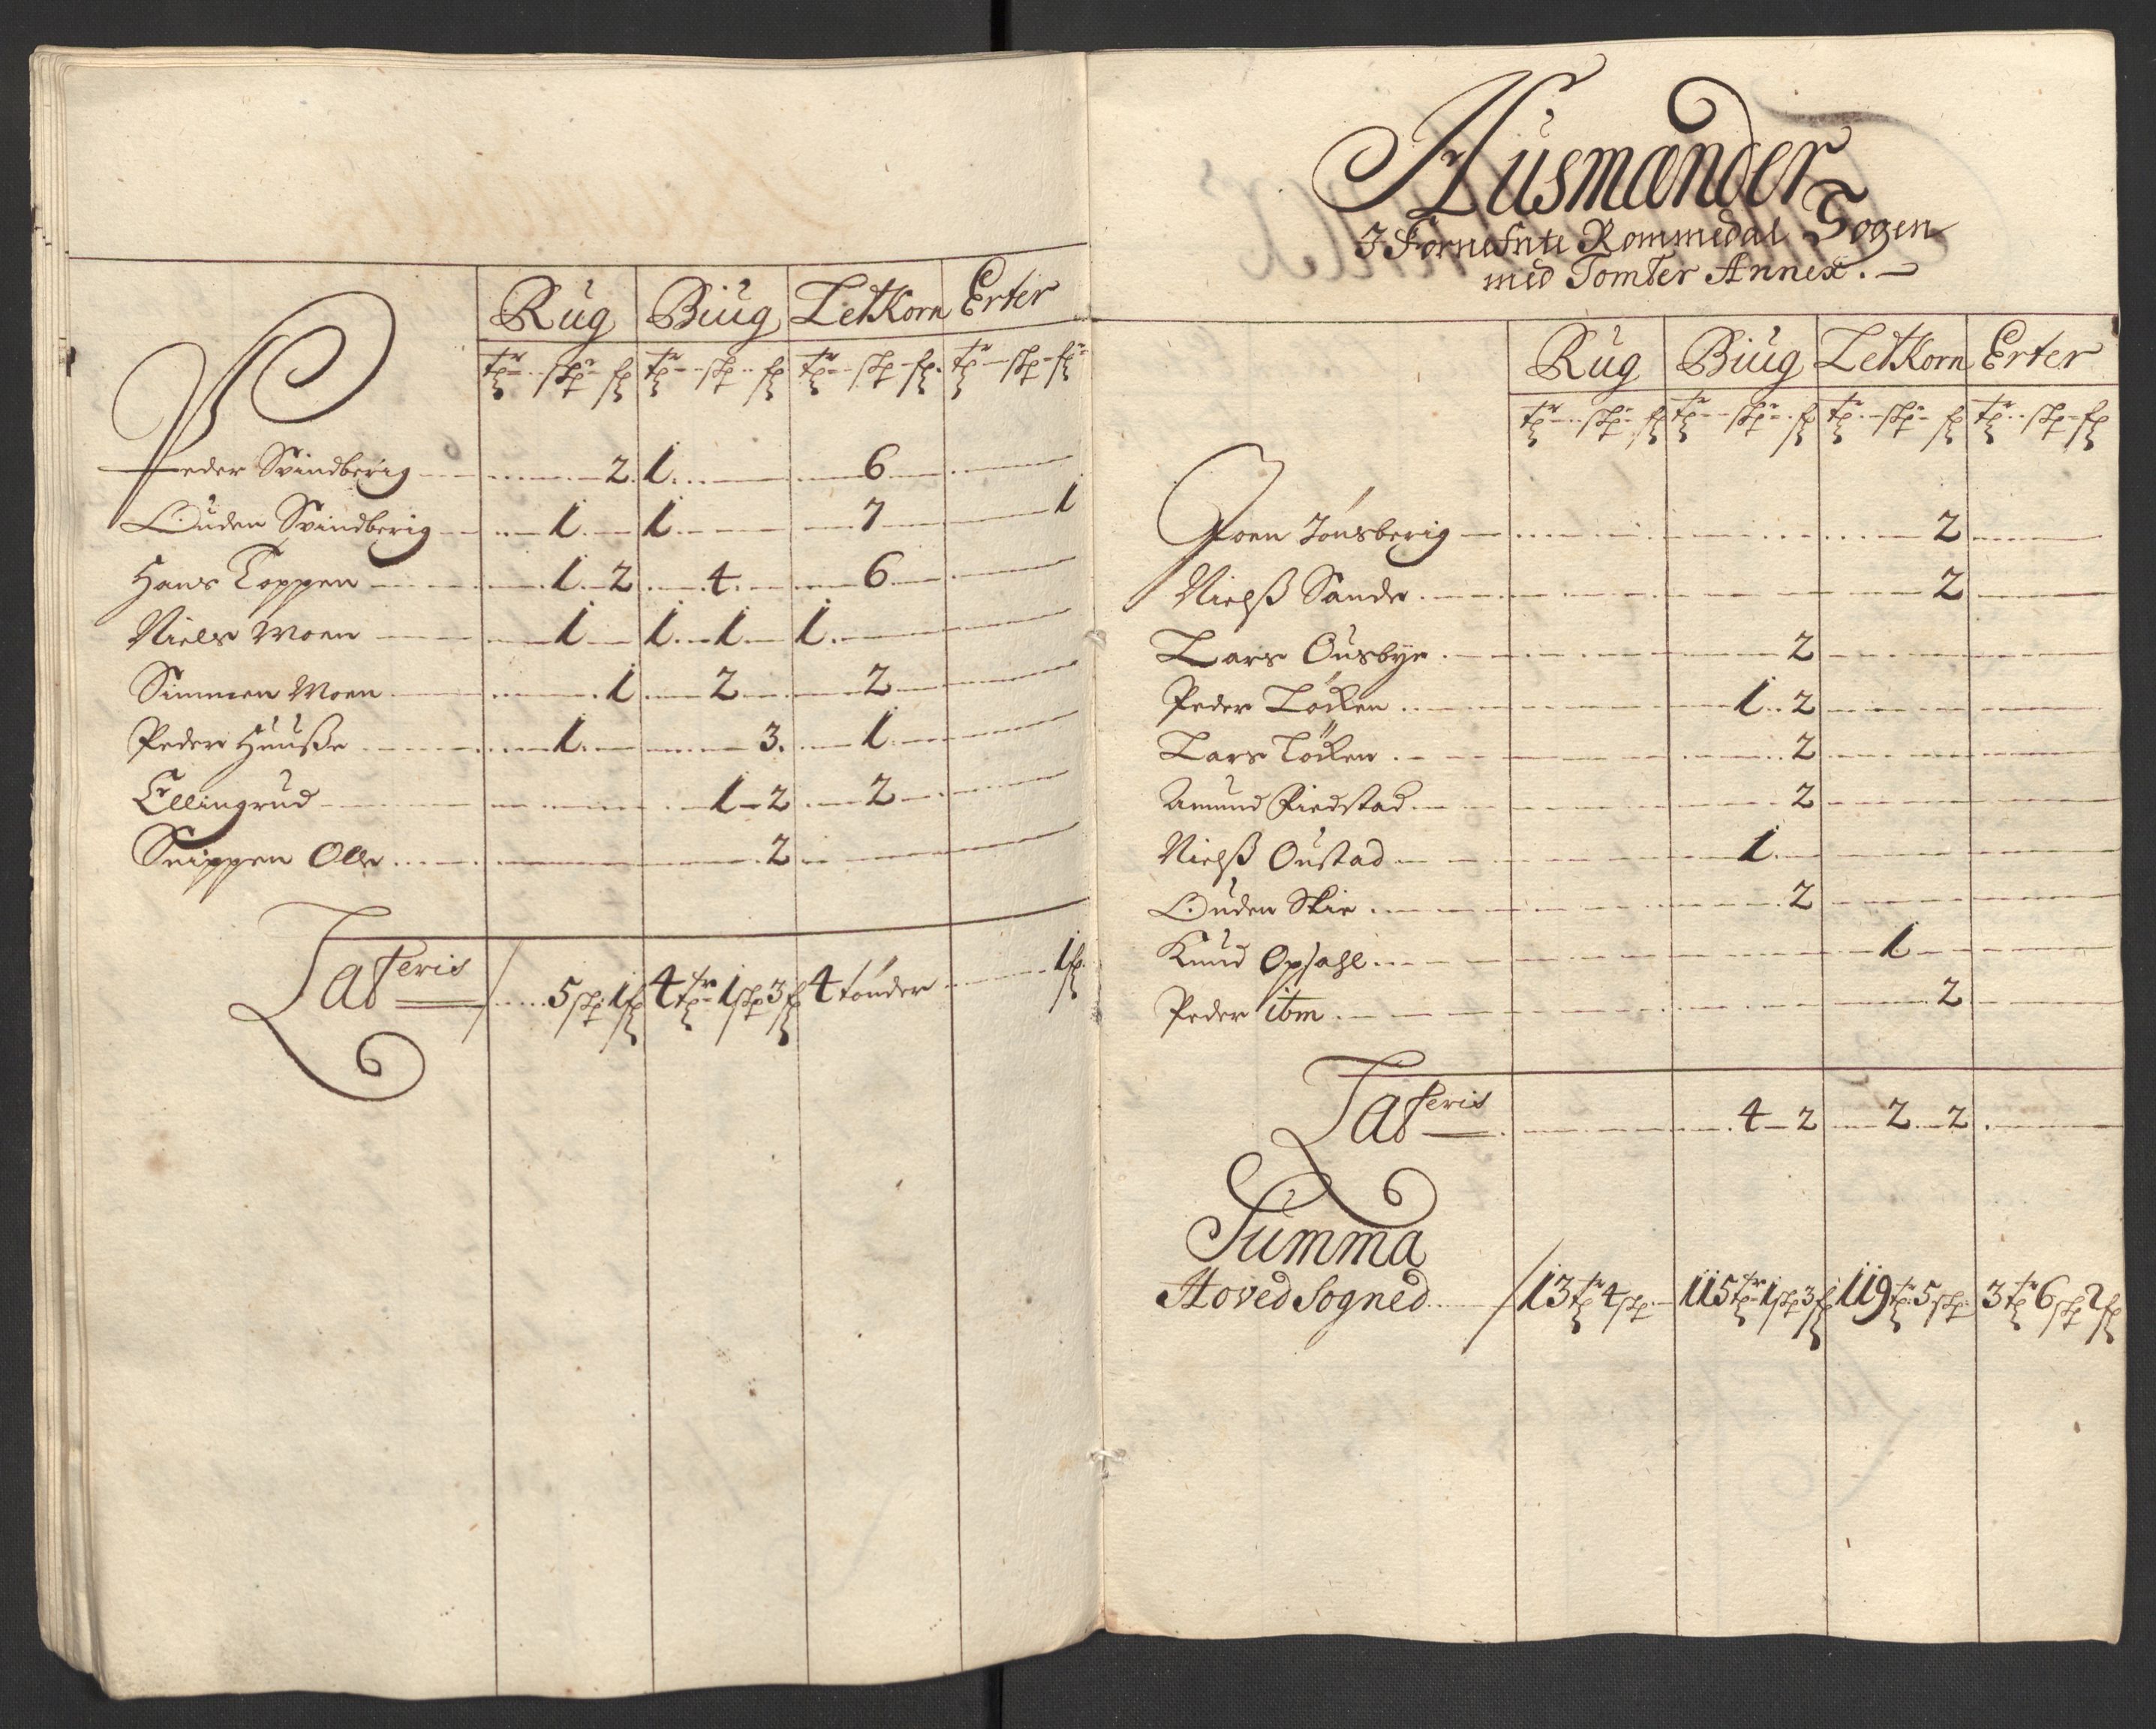 Rug Biug LetKorn Erter
tr skp fj tr skp fj tr skp fj tr skp fj
Peder Svindberig 2 1 6
Ouden Svindberig 1 1 7 1
Hans Toppen 1 2 4 6
Niels Moen 1 1 1 1
Simmen Moen 1 2 2
Peder Huuße 1 3 1
Ellingrud 1 2 2
Snippen Olle 2
Lateris 5 skp 1 fj 4 tr 1 skp 3 fj 4 tønder 1 fj
Husmænder
I Fornefnte Rommedal Sogen
med Tomter Annex.
Rug Biug LetKorn Erter
tr skp fj tr skp fj tr skp fj tr skp fj
Joen Tønsberig 2
Nielß Sande 2
Lars Ousbye 2
Peder Løcken 1 2
Lars Løcken 2
Amund Fiedstad 2
Nielß Oustad 1
Ouden Skie 2
Knud Opsahl 1
Peder ibm 2
Lateris 4 2 2 2
Summa
Hoved Sogned 13 tr 4 skp 115 tr 1 skp 3 fj 119 tr 5 skp 3 tr 6 skp 2 fj